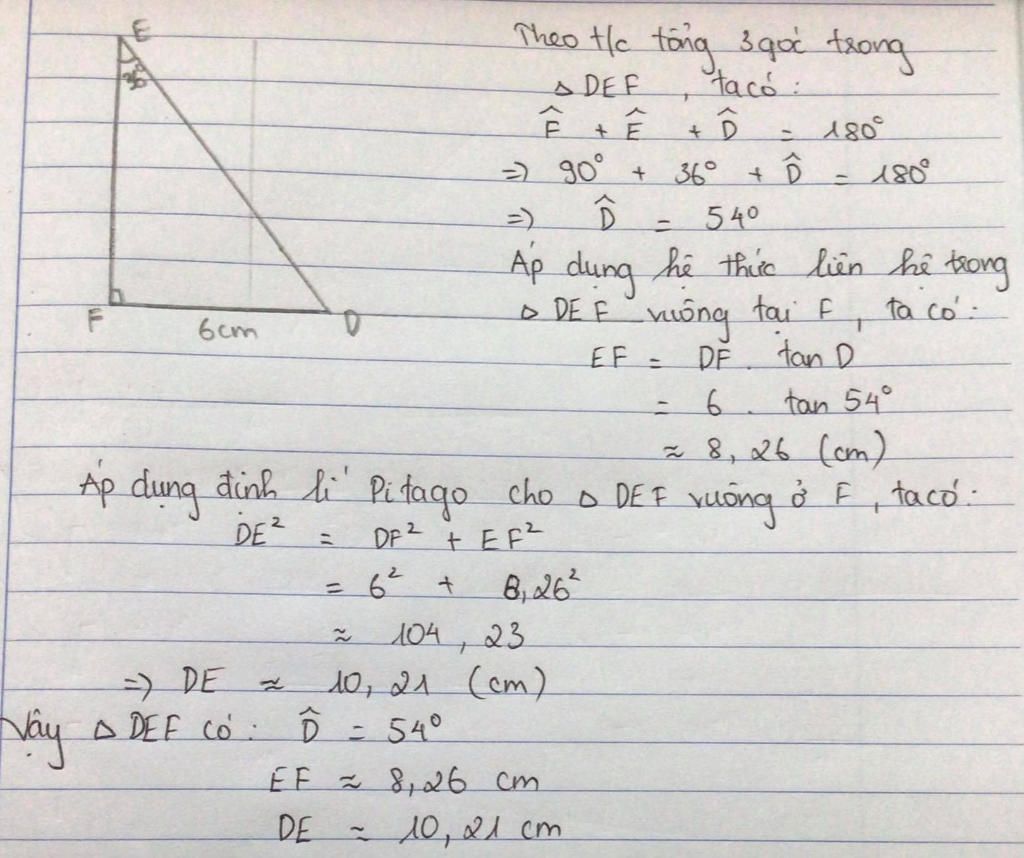 E
36°
F
6cm
D
Theo t/c tổng 3 góc trong
△ DEF , ta có :
F̂ + Ê + D̂ = 180°
=> 90° + 36° + D̂ = 180°
=> D̂ = 54°
Áp dụng hệ thức liên hệ trong
△ DEF vuông tại F , ta có :
EF = DF . tan D
= 6 . tan 54°
≈ 8,26 (cm)
Áp dụng định lí Pitago cho △ DEF vuông ở F , ta có :
DE² = DF² + EF²
= 6² + 8,26²
≈ 104,23
=> DE ≈ 10,21 (cm)
Vậy △ DEF có : D̂ = 54°
EF ≈ 8,26 cm
DE ≈ 10,21 cm